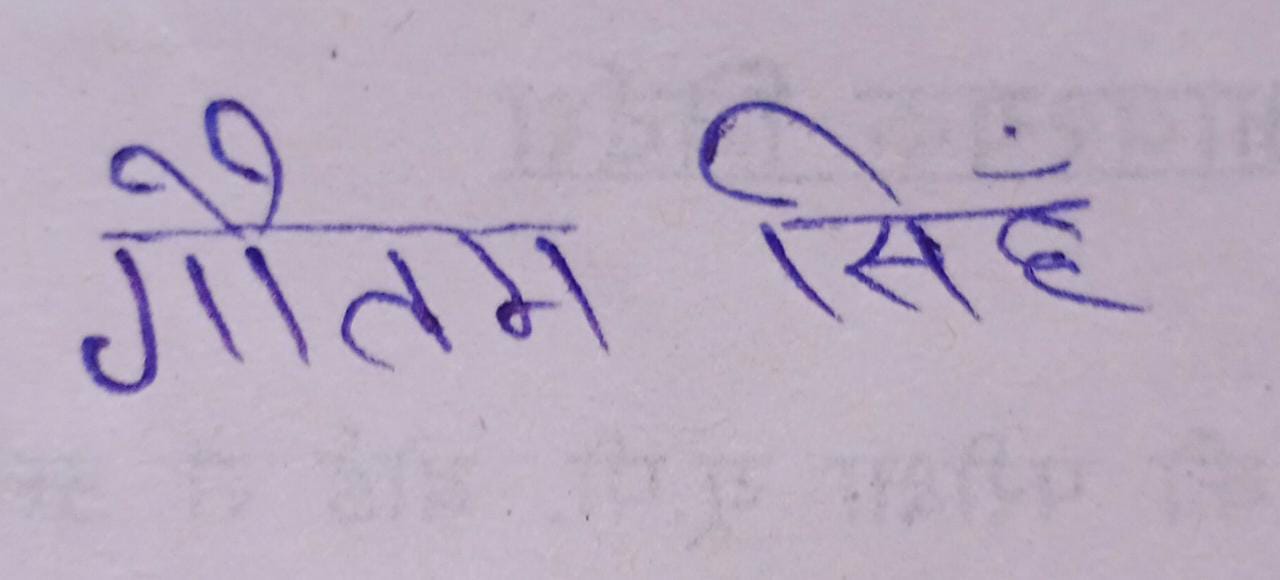 गौतम सिहँ